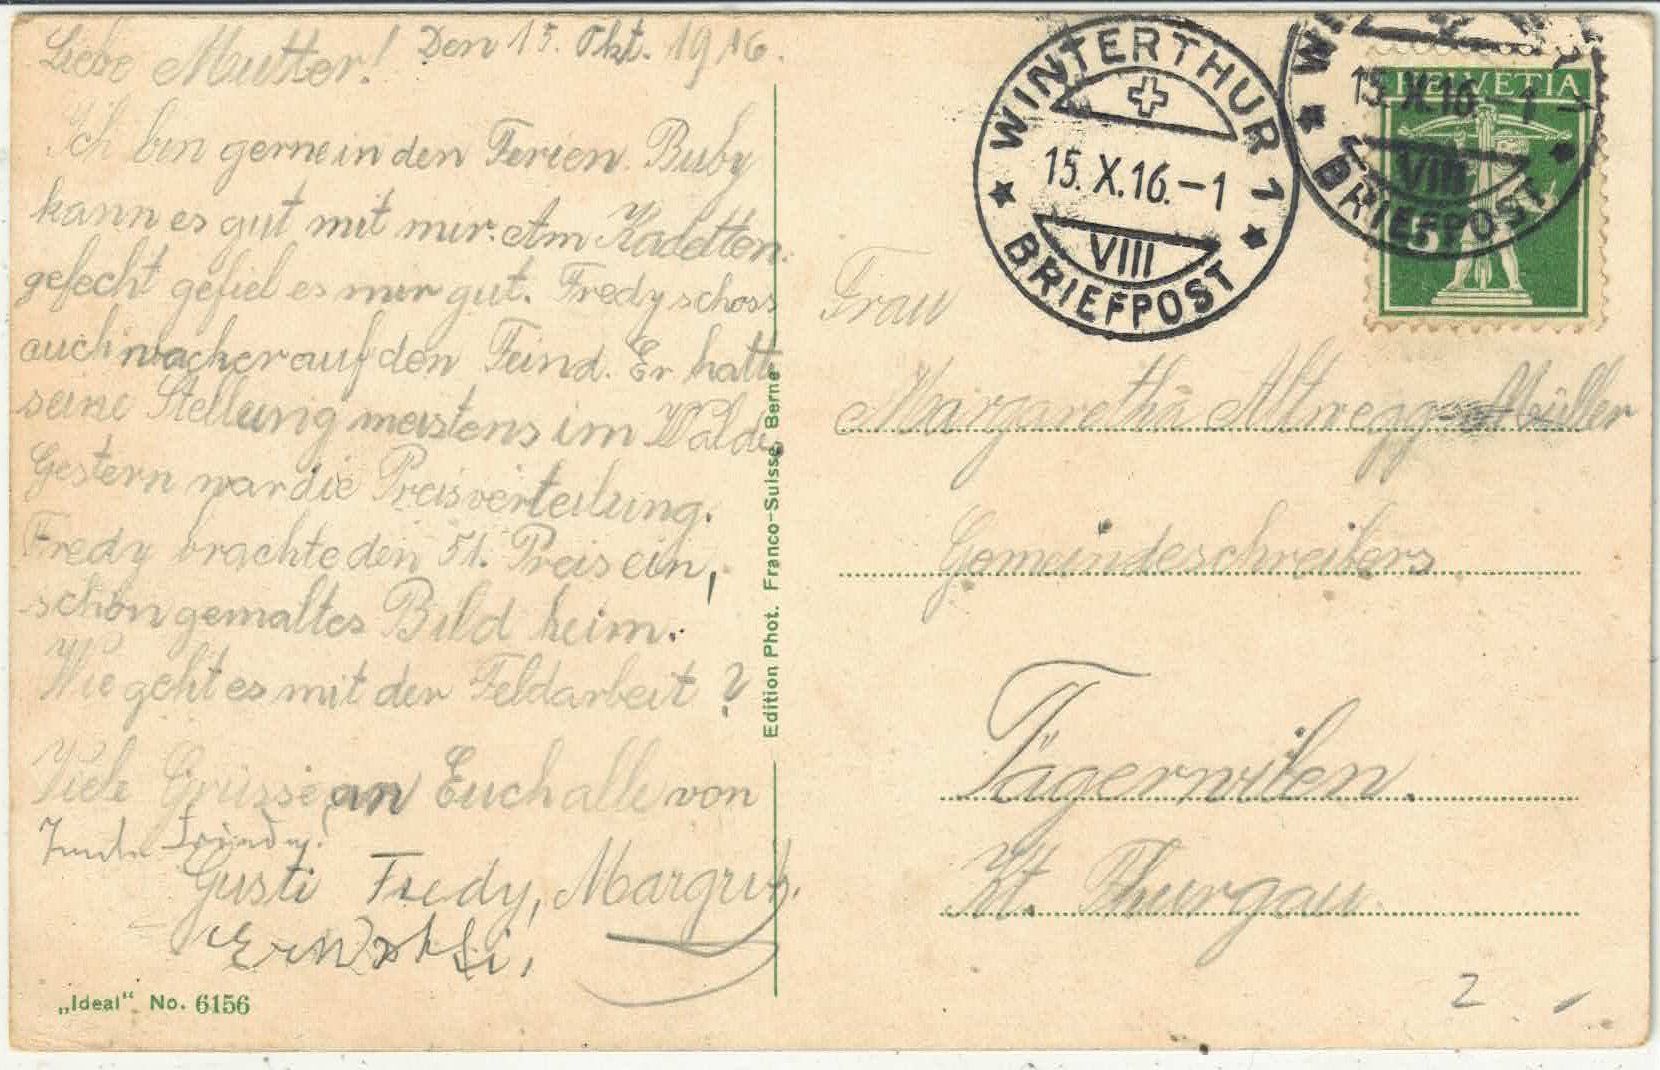 Liebe Mutter! Den 15. Okt. 1916.
Ich bin gerne in den Ferien. Buby
kann es gut mit mir. Am Kadetten-
gefecht gefiel es mir gut. Fredy schoss
auch wacker auf den Feind. Er hatte
seine Stellung meistens im Walde.
Gestern war die Preisverteilung.
Fredy brachte den 51. Preis ein,
schön gemaltes Bild heim.
Wie geht es mit der Feldarbeit?
Viele Grüsse an Euch alle von
Gusti Fredy, Margrit.
„Ideal“ No. 6156
Edition Phot. Franco-Suisse, Berne
WINTERTHUR 1
15. X. 16. – 1
VIII
BRIEFPOST
15. X. 16. – 1
VIII
BRIEFPOST
HELVETIA
5
Frau
Margaretha Altwegg-Müller
Gemeindeschreibers
Tägerwilen.
Kt. Thurgau.
2